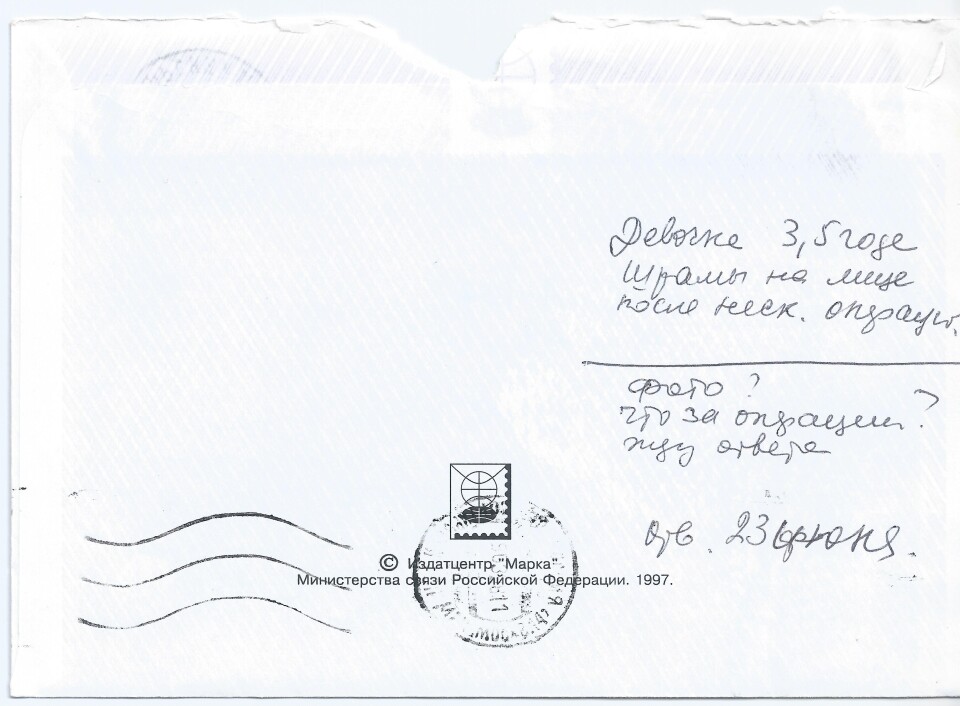 Девочке 3,5 годе
Шрамы на лице
после неск. опрации.
Фото?
Что за опрации?
жду ответа
Отв. 23 июня.
© Издатцентр "Марка"
Министерства связи Российской Федерации. 1997.